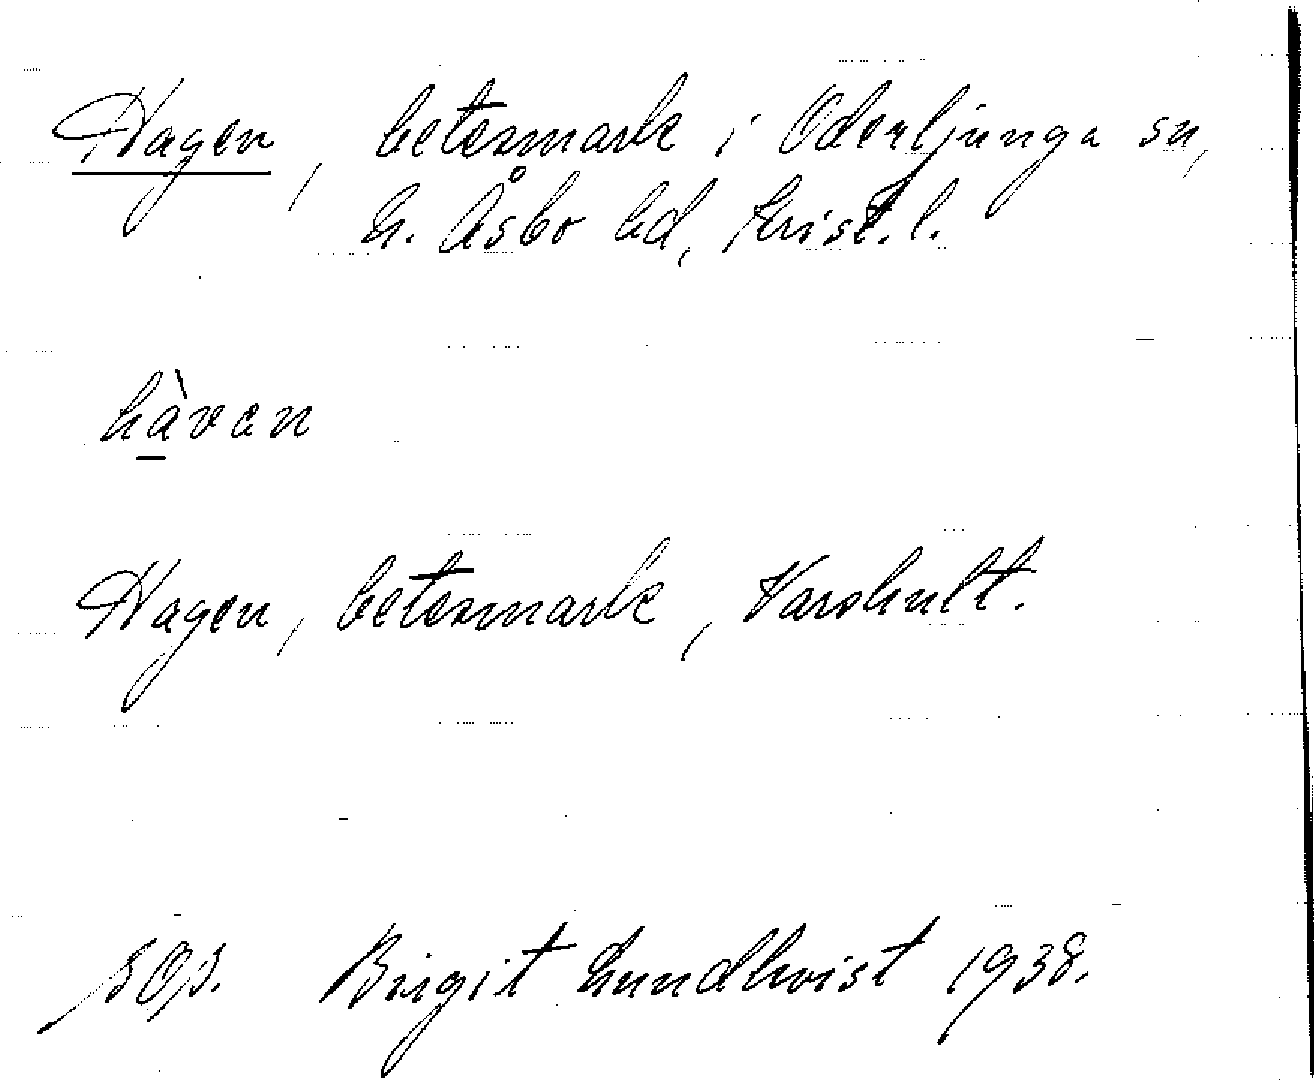 Hagen, betesmark i Oderljunga sn,
N. Åsbo hd, Krist. l.
hàvan
Hagen, betesmark, Varshult.
Birgit Lundkvist 1938.